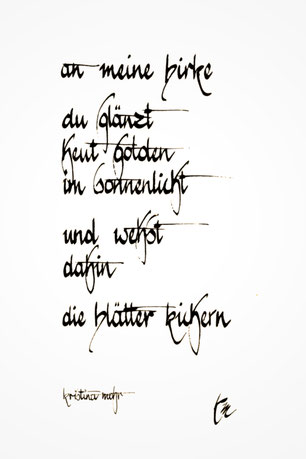 an meine birke
du glänzt
heut golden
im sonnenlicht
und wehst
dahin
die blätter kichern
kristina mohr